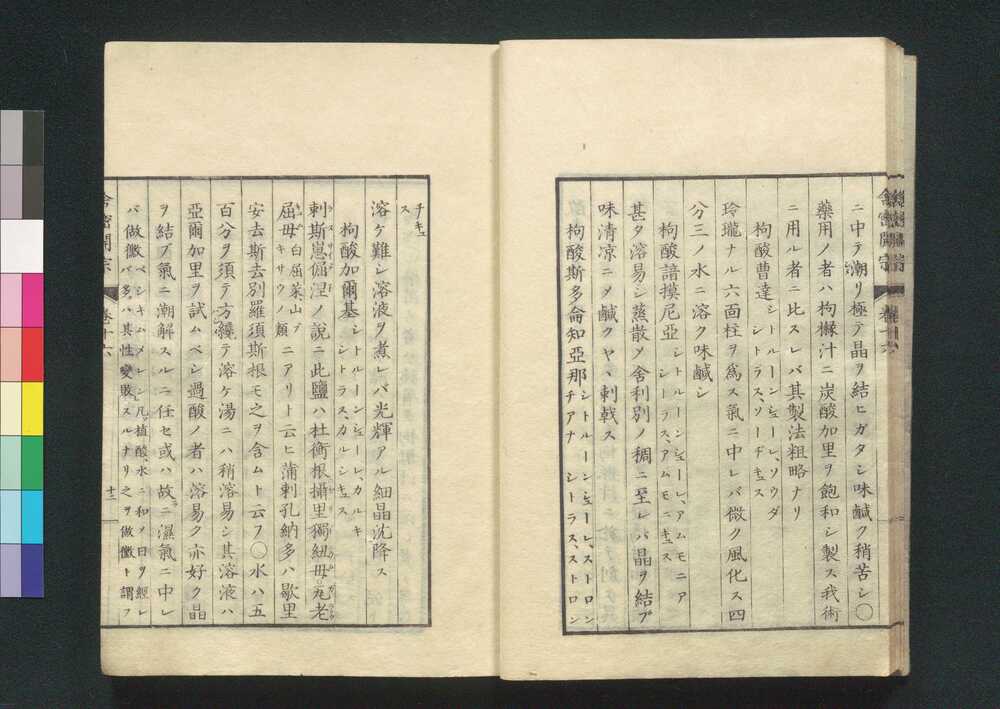 舎密開宗　卷十六
ニ中テ潮リ極テ晶ヲ結ヒガタシ味鹹ク稍苦シ〇
藥用ノ者ハ枸櫞汁ニ炭酸加里ヲ飽和シ製ス我術
ニ用ル者ニ比スレバ其製法粗略ナリ
枸酸曹達 シトルーンシューレ、ソウダ シトラス、ソーヂキュス
玲瓏ナル六面柱ヲ爲ス氣ニ中レバ微ク風化ス四
分三ノ水ニ溶ク味鹹シ
枸酸諳摸尼亞 シトルーンシューレ、アムモニア シトラス、アムモニキュス
甚タ溶易シ蒸散メ舎利別ノ稠ニ至レバ晶ヲ結ブ
味清凉ニメ鹹クヤヽ刺戟ス
枸酸斯多侖知亞那 シトルーンシューレ、ストロンチアナ シトラス、ストロン
チキュス
溶ケ難シ溶液ヲ煮レバ光輝アル細晶沈降ス
枸酸加爾基 シトルーンシューレ、カルキ シトラス、カルシキュス
剌斯崽倔涅ノ說ニ此鹽ハ杜衡根攝里獨紐母老
屈毋 白屈菜山ブキサウノ類 ニアリト云ヒ蒲剌孔納多ハ歇里
安去斯去別羅須斯根モ之ヲ含ムト云フ〇水ハ五
百分ヲ須テ方纔テ溶ケ湯ニハ稍溶易シ其溶液ハ
亞爾加里ヲ試ムベシ過酸ノ者ハ溶易ク亦好ク晶
ヲ結ブ氣ニ潮解スルニ任セ或ハ故ニ濕氣ニ中レ
バ做黴 ベシキムメレン凡植酸、水ニ和ソ日ヲ經レバ多ハ其性變敗スルナリ之ヲ做黴ト謂フ
舎密開宗　卷十六　十二